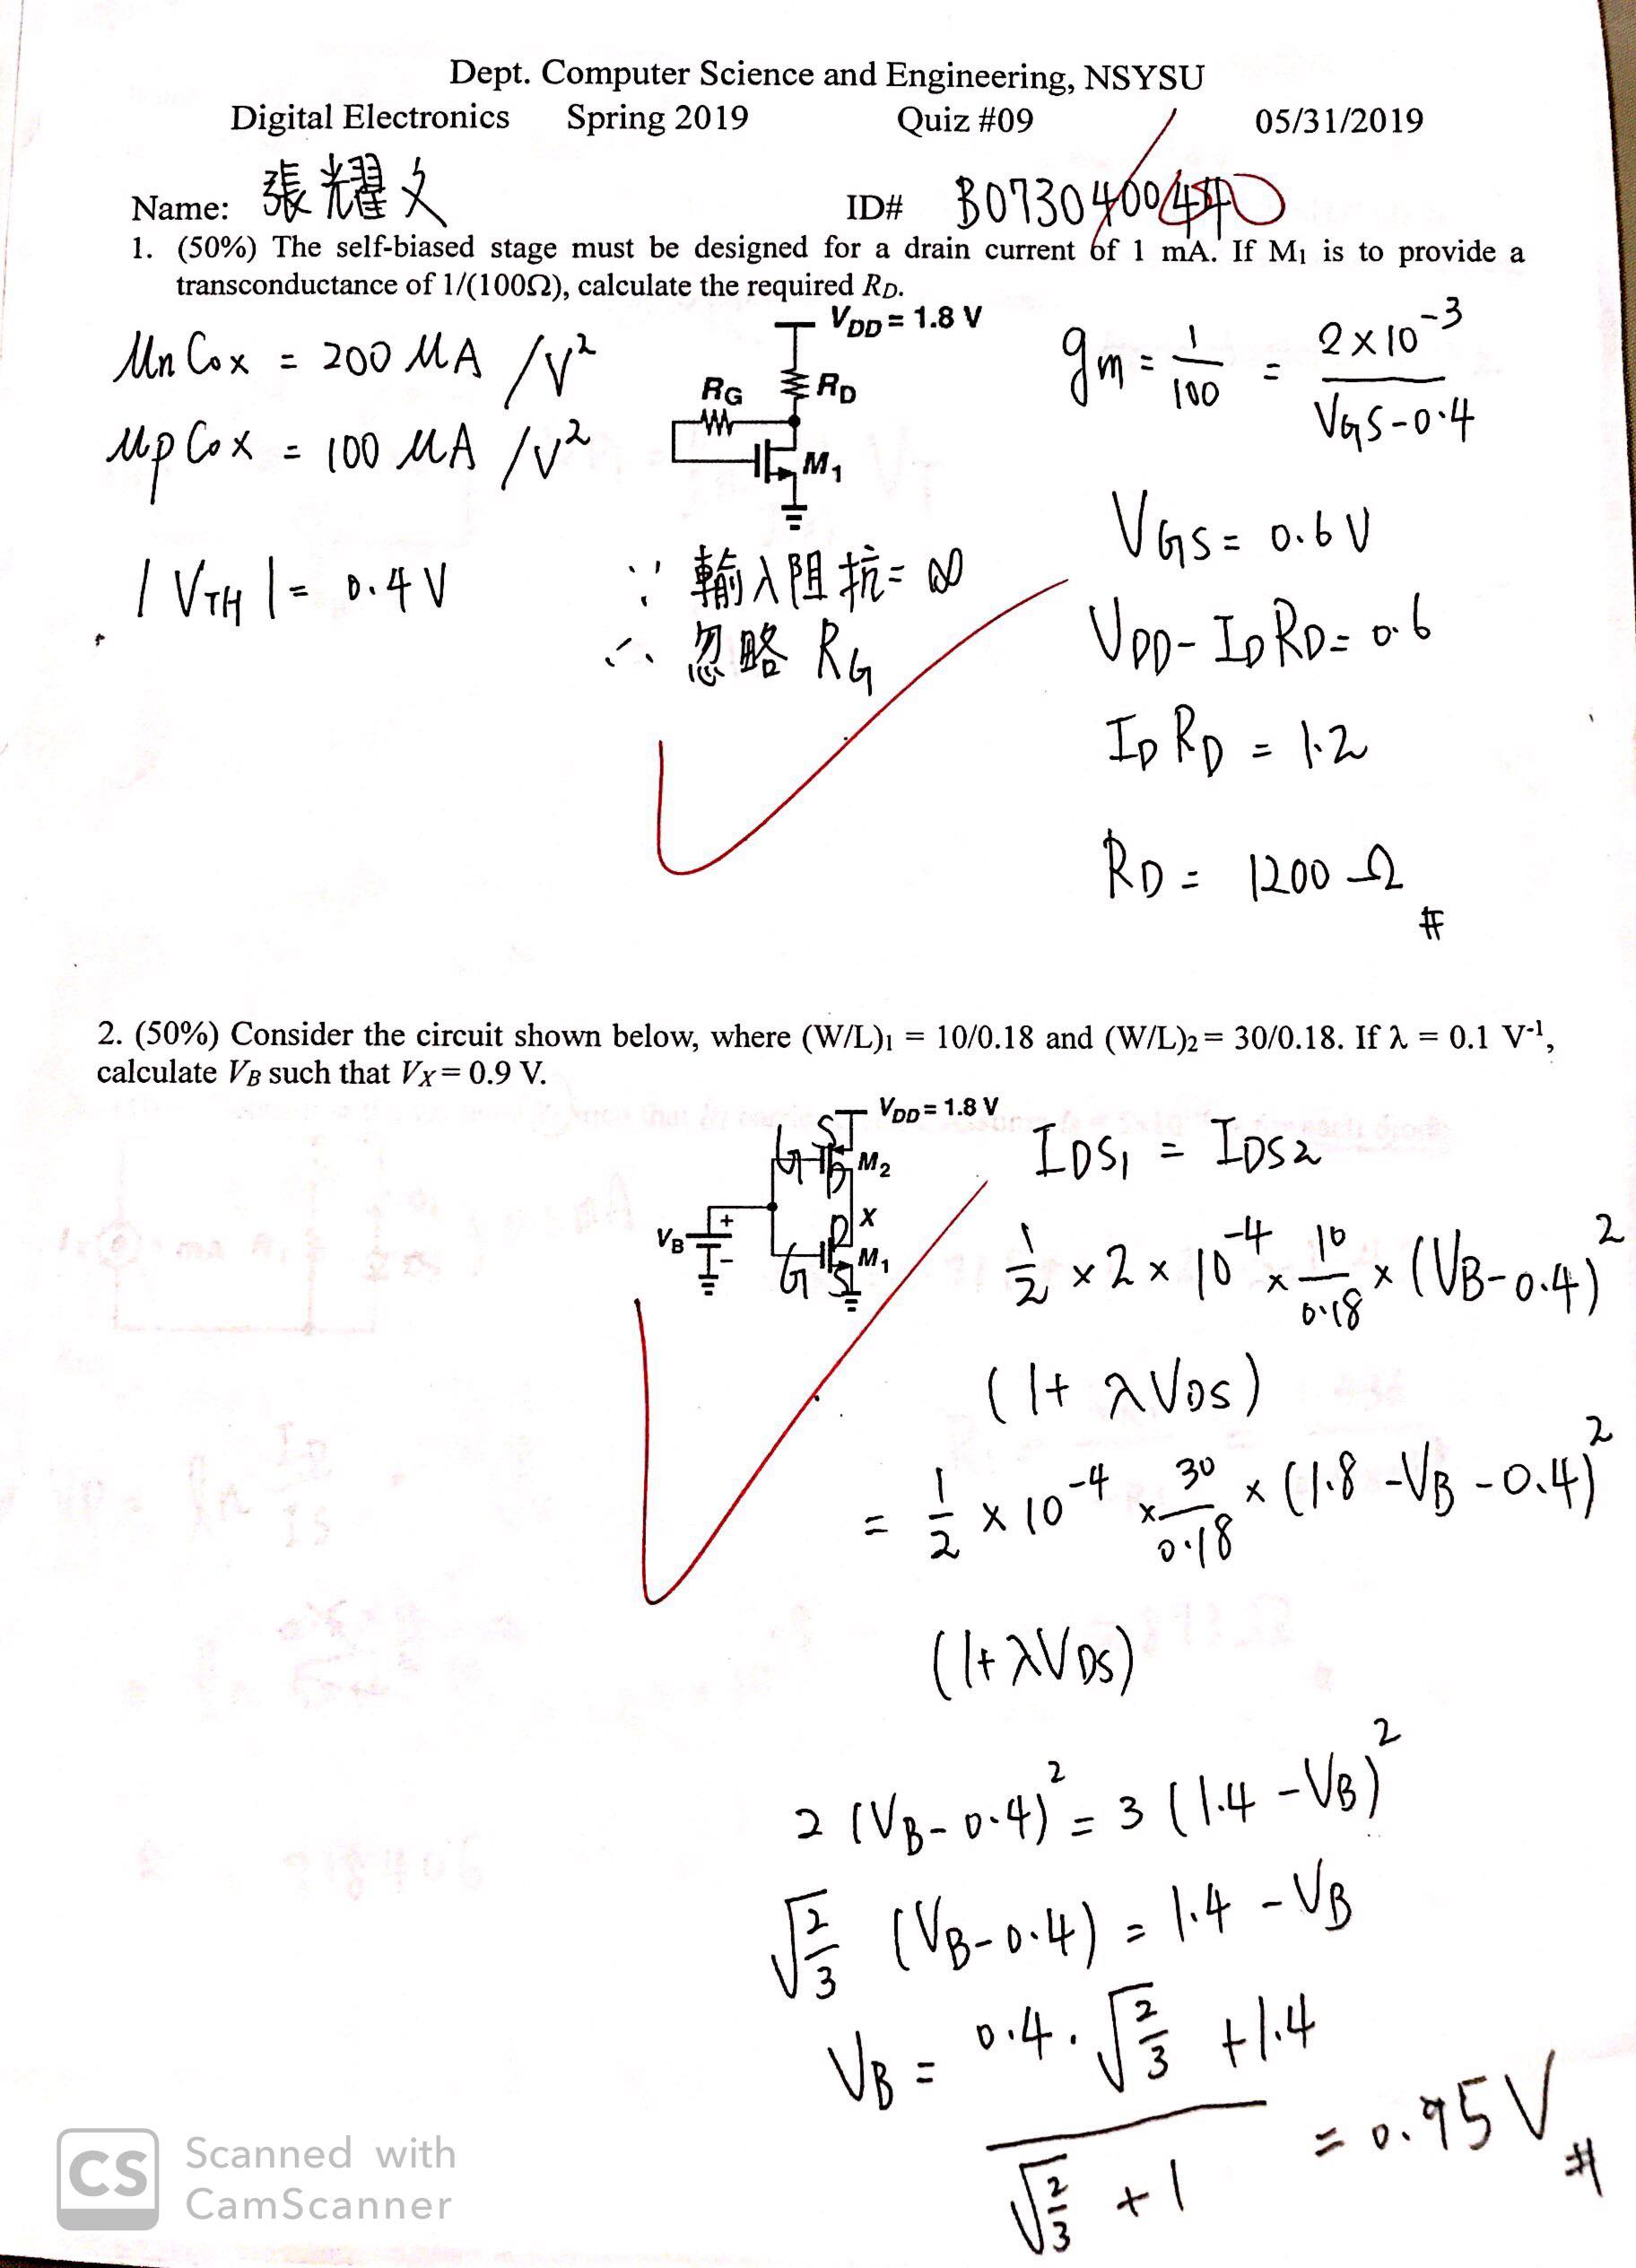 Dept. Computer Science and Engineering, NSYSU
Digital Electronics Spring 2019 Quiz #09 05/31/2019
Name: 張耀文 ID# B073040044
1. (50%) The self-biased stage must be designed for a drain current of 1 mA. If M₁ is to provide a
transconductance of 1/(100Ω), calculate the required RD.
μnCox = 200 μA /V²
μpCox = 100 μA /V²
|VTH| = 0.4 V
VDD = 1.8 V
RG
RD
M₁
∵ 輸入阻抗 = ∞
∴ 忽略 RG
gm = 1/100 = 2×10⁻³/(VGS-0.4)
VGS = 0.6 V
VDD - IDRD = 0.6
IDRD = 1.2
RD = 1200 Ω #
2. (50%) Consider the circuit shown below, where (W/L)₁ = 10/0.18 and (W/L)₂ = 30/0.18. If λ = 0.1 V⁻¹,
calculate VB such that VX = 0.9 V.
VDD = 1.8 V
S
G
M₂
D
X
VB
+
-
D
G
M₁
S
IDS₁ = IDS₂
1/2 × 2 × 10⁻⁴ × 10/0.18 × (VB-0.4)²
(1+λVDS)
= 1/2 × 10⁻⁴ × 30/0.18 × (1.8-VB-0.4)²
(1+λVDS)
2(VB-0.4)² = 3(1.4-VB)²
√(2/3) (VB-0.4) = 1.4-VB
VB = (0.4·√(2/3) +1.4)/(√(2/3) + 1) = 0.95V #
CS Scanned with
CamScanner